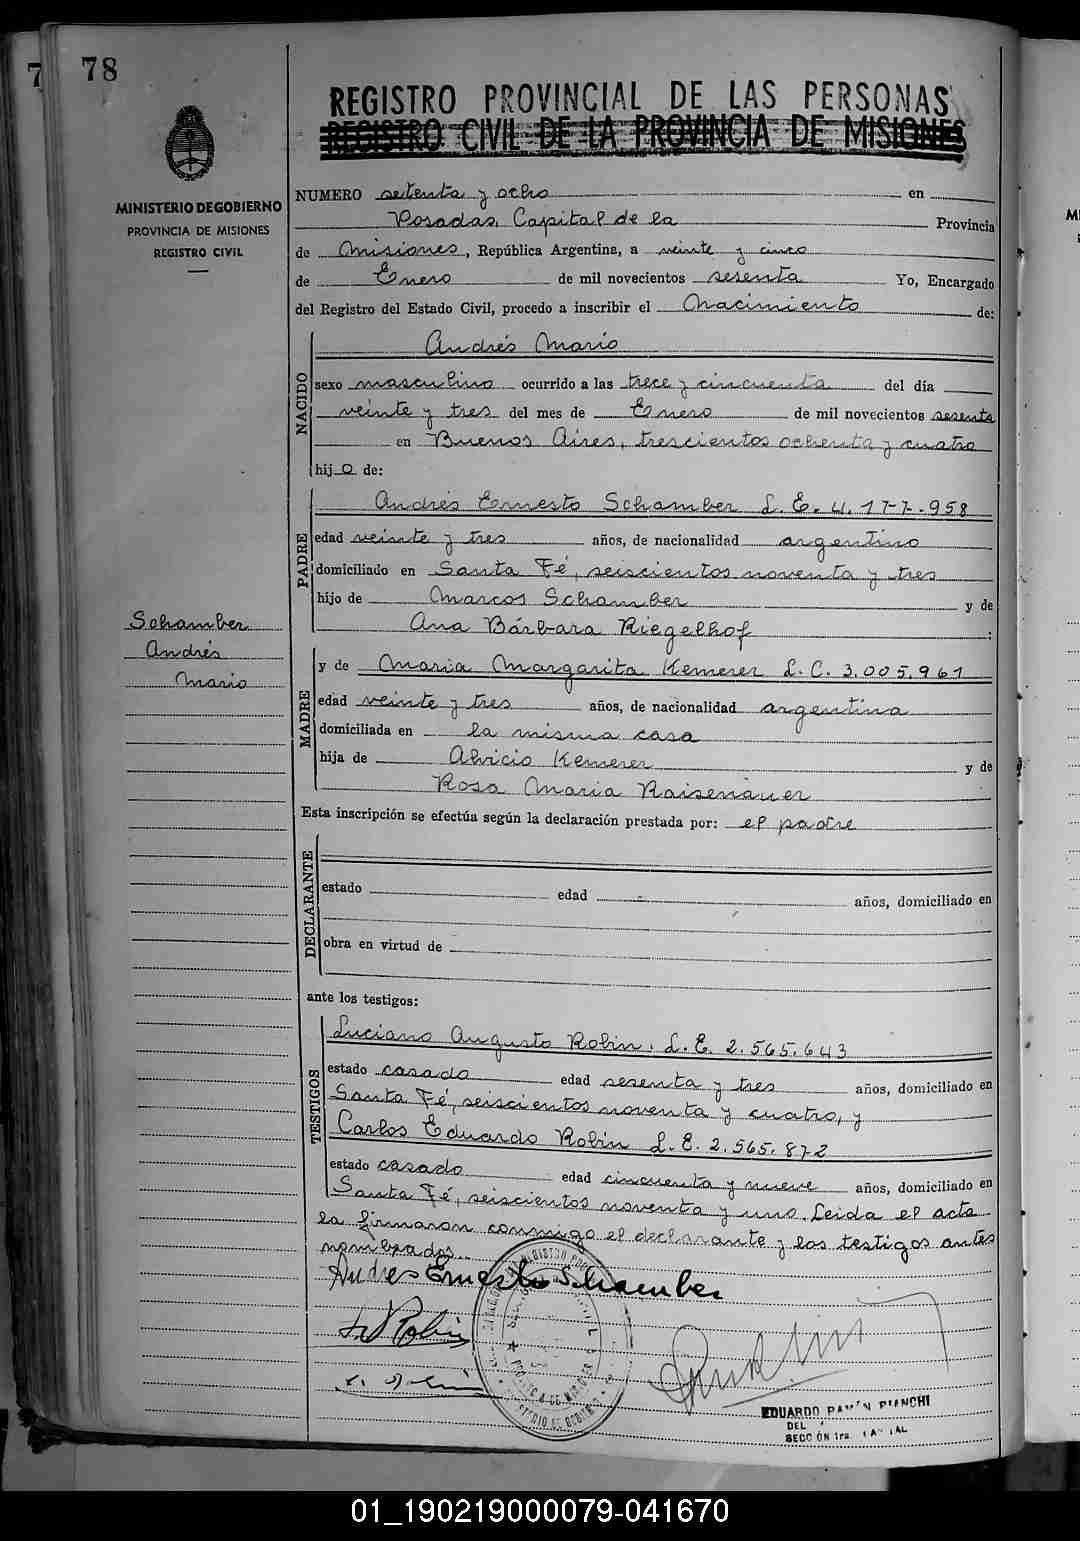 78
REGISTRO PROVINCIAL DE LAS PERSONAS
REGISTRO CIVIL DE LA PROVINCIA DE MISIONES
MINISTERIO DE GOBIERNO
PROVINCIA DE MISIONES
REGISTRO CIVIL
NUMERO setenta y ocho en
Posadas, Capital de la Provincia
de Misiones, República Argentina, a veinte y cinco
de Enero de mil novecientos sesenta Yo, Encargado
del Registro del Estado Civil, procedo a inscribir el Nacimiento de:
NACIDO
Andrés Mario
sexo masculino ocurrido a las trece y cincuenta del día
veinte y tres del mes de Enero de mil novecientos sesenta
en Buenos Aires, trescientos ochenta y cuatro
hijo de:
PADRE
Andrés Ernesto Schamber L.E. 4.177.958
edad veinte y tres años, de nacionalidad argentino
domiciliado en Santa Fé, seiscientos noventa y tres
hijo de Marcos Schamber y de
Ana Bárbara Riegelhof :
Schamber
Andrés
Mario
MADRE
y de Maria Margarita Kemerer L.C. 3.005.961
edad veinte y tres años, de nacionalidad argentina
domiciliada en la misma casa
hija de Alvicio Kemerer y de
Rosa Maria Raisenauer
Esta inscripción se efectúa según la declaración prestada por: el padre
DECLARANTE
estado edad años, domiciliado en
obra en virtud de
ante los testigos:
TESTIGOS
Luciano Augusto Robin. L.E. 2.565.643
estado casado edad sesenta y tres años, domiciliado en
Santa Fé, seiscientos noventa y cuatro, y
Carlos Eduardo Robin L.E. 2.565.872
estado casado edad cincuenta y nueve años, domiciliado en
Santa Fé, seiscientos noventa y uno. Leida el acta
la firmaron conmigo el declarante y los testigos antes
nombrados..
Andres Ernesto Schamber
EDUARDO RAMÓN BIANCHI
DEL
SECCIÓN 1ra.
01_190219000079-041670